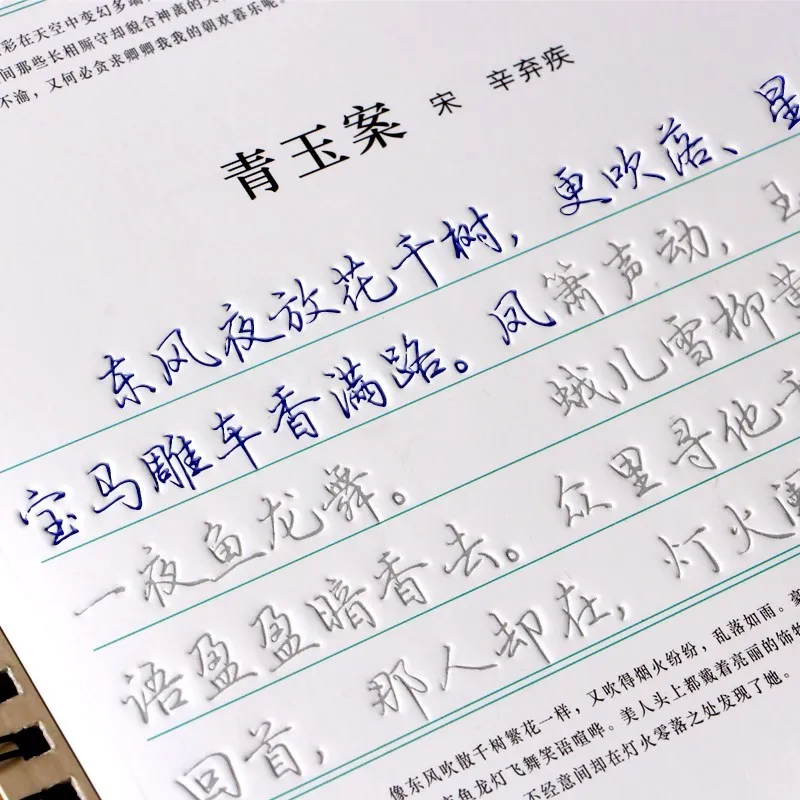 彩在天空中变幻多端
间那些长相厮守却貌合神离的夫
不渝，又何必贪求卿卿我我的朝欢暮乐呢。
青玉案 宋 辛弃疾
东风夜放花千树，更吹落、星
宝马雕车香满路。凤箫声动，玉
一夜鱼龙舞。 蛾儿雪柳黄
语盈盈暗香去。众里寻他千
回首，那人却在，灯火阑
像东风吹散千树繁花一样，又吹得烟火纷纷，乱落如雨。豪
鱼龙灯飞舞笑语喧哗。美人头上都戴着亮丽的饰物
不经意间却在灯火零落之处发现了她。